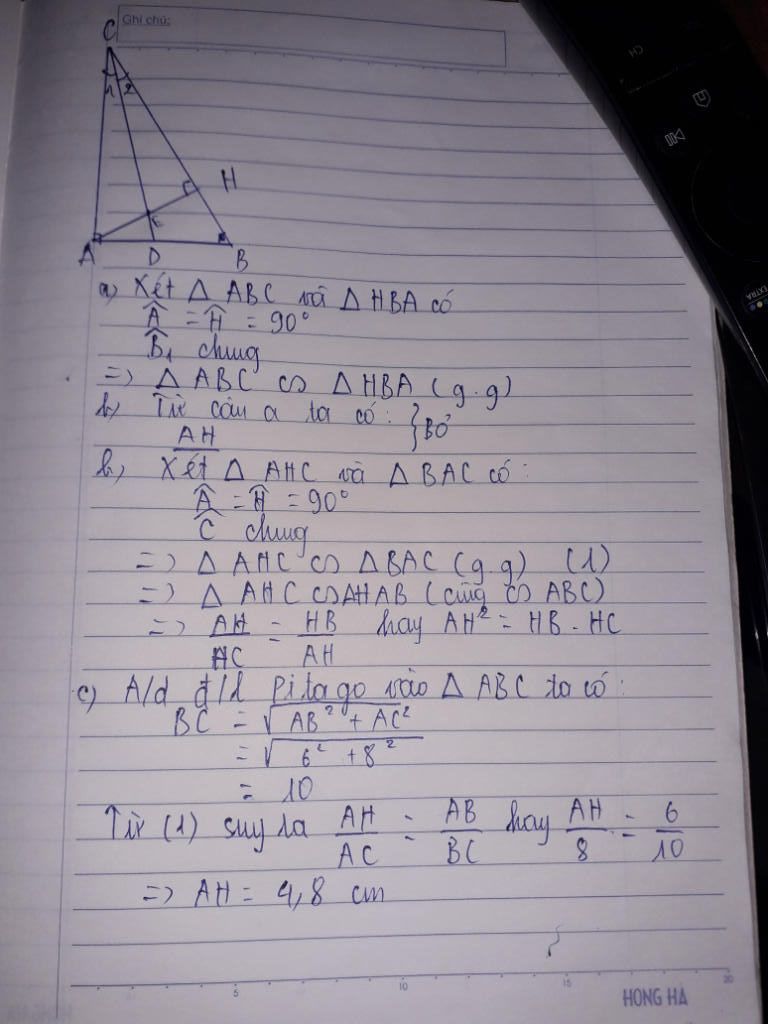 Ghi chú:
C
1 2
H
E
A D B
a) Xét △ ABC và △ HBA có
Â = Ĥ = 90°
B̂₁ chung
=> △ ABC ∽ △ HBA (g.g)
b) Từ câu a ta có: } BỎ
AH
b) Xét △ AHC và △ BAC có:
Â = Ĥ = 90°
Ĉ chung
=> △ AHC ∽ △ BAC (g.g) (1)
=> △ AHC ∽ △HAB (cùng ∽ ABC)
=> AH/HC = HB/AH hay AH² = HB . HC
c) A/d đ/l Pitago vào △ ABC ta có:
BC = √(AB² + AC²)
= √(6² + 8²)
= 10
Từ (1) suy ra AH/AC = AB/BC hay AH/8 = 6/10
=> AH = 4,8 cm
5 10 15 20
HONG HA
CH
EXTRA